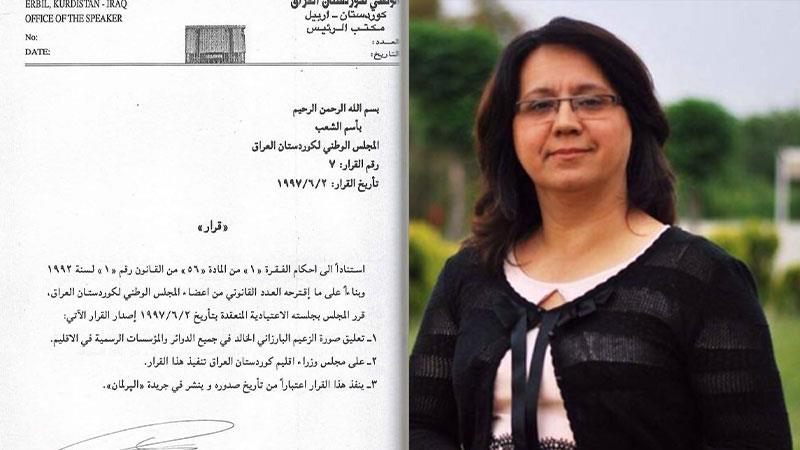 ERBIL, KURDISTAN - IRAQ
OFFICE OF THE SPEAKER
No:
DATE:
الوطني لكوردستان العراق
كوردستان - اربيل
مكتب الرئيس
العدد:
التاريخ:
بسم الله الرحمن الرحيم
بأسم الشعب
المجلس الوطني لكوردستان العراق
رقم القرار: ٧
تأريخ القرار: ١٩٩٧/٦/٢
«قرار»
استناداً الى احكام الفقرة «١» من المادة «٥٦» من القانون رقم «١» لسنة ١٩٩٢
وبناءاً على ما إقترحه العدد القانوني من اعضاء المجلس الوطني لكوردستان العراق،
قرر المجلس بجلسته الاعتيادية المنعقدة بتأريخ ١٩٩٧/٦/٢ إصدار القرار الآتي:
١ـ تعليق صورة الزعيم البارزاني الخالد في جميع الدوائر والمؤسسات الرسمية في الاقليم.
٢ـ على مجلس وزراء اقليم كوردستان العراق تنفيذ هذا القرار.
٣ـ ينفذ هذا القرار اعتباراً من تأريخ صدوره و ينشر في جريدة «الپرلمان».